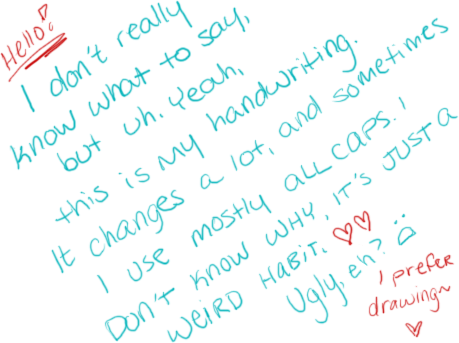 Hello!
I don't really
know what to say,
but uh. Yeah,
this is my handwriting.
It changes a lot, and sometimes
I use mostly all caps. I
DON'T KNOW WHY, IT'S JUST A
WEIRD HABIT. ♡♡
Ugly, eh? :(
I prefer
drawing~
♡